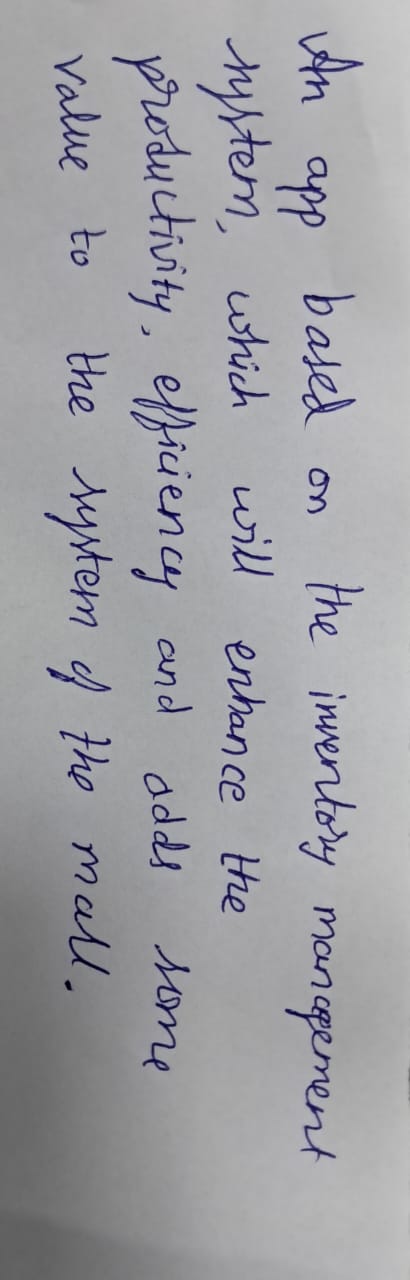 An app based on the inventory management
system, which will enhance the
productivity, efficiency and adds some
value to the system of the mall.